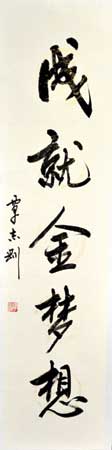 成就金梦想
覃志刚